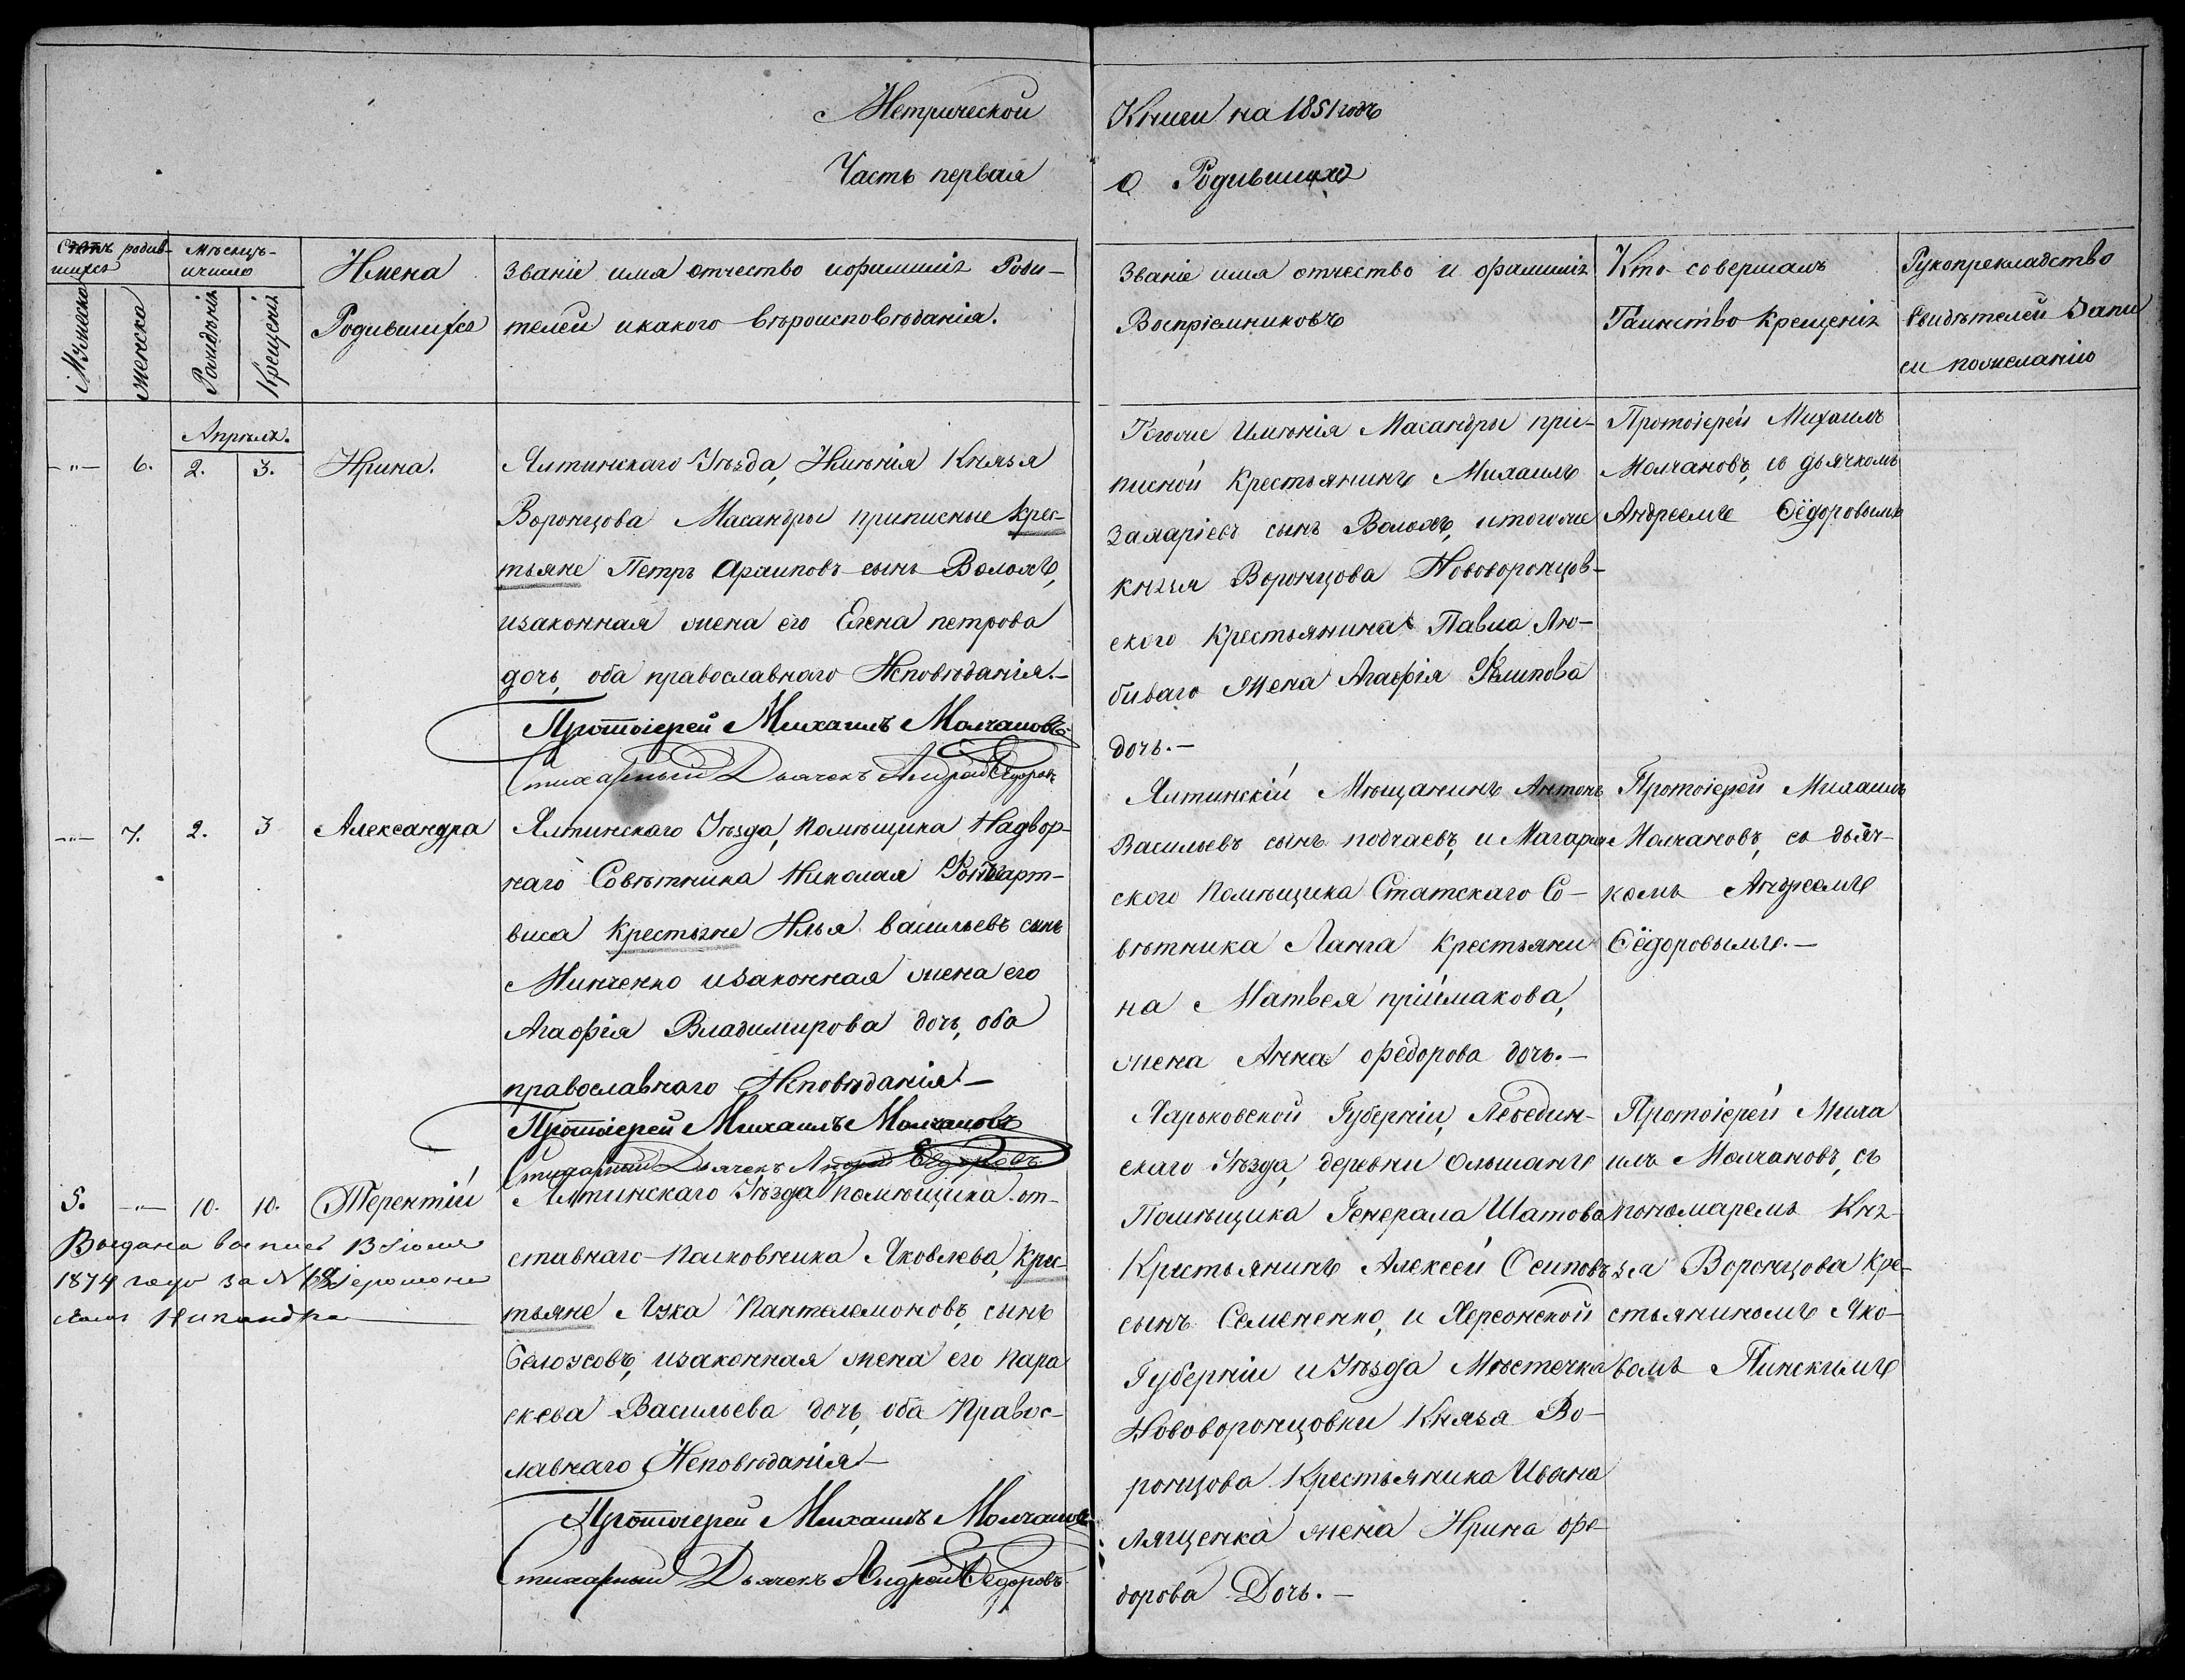 Метрической
Книги на 1851 годъ
Часть первая
О Родившихся
Счетъ родив-
шихся
Мужеска
Женска
Мѣсяцъ-
и число
Рожденія
Крещенія
Имена
Родившихся
Званіе имя отчество и фамилія Роди-
телей и какого вѣроисповѣданія.
Званіе имя отчество и фамилія
Воспріемниковъ
Кто совершалъ
Таинство Крещенія
Рукоприкладство
Свидѣтелей запи
си по желанію
Апрѣля.
-"- 6. 2. 3.
Ирина.
Ялтинскаго Уѣзда, Имѣнія Князя
Воронцова Масандры приписные крес-
тьяне Петръ Архиповъ сынъ Волохъ,
и законная жена его Елена петрова
дочь, оба православнаго Исповѣданія.-
Протоіерей Михаилъ Молчановъ
Стихарный Дьячекъ Андрей Ѳедоровъ
Тогоже Имѣнія Масандры при-
писной Крестьянинъ Михаилъ
Захаріевъ сынъ Волохъ, и тогоже
князя Воронцова Нововоронцов-
ского Крестьянина Павла Лю-
биваго жена Агафія Филипова
дочь.-
Протоіерей Михаилъ
Молчановъ, съ дьячкомъ
Андреемъ Ѳёдоровымъ
-"- 7. 2. 3
Александра
Ялтинскаго Уѣзда, Помѣщика Надвор-
наго Совѣтника Николая
виса крестьяне Илья васильевъ сынъ
Минченко и законная жена его
Агафія Владимирова дочь, оба
православнаго Исповѣданія.-
Протоіерей Михаилъ Молчановъ
Стихарный Дьячекъ Андрей Ѳедоровъ
Ялтинскій Мѣщанинъ Антонъ
Васильевъ сынъ подчаевъ, и Магарач
ского Помѣщика Статскаго Со-
вѣтника Ланга крестьяни
на Матвея пріймакова,
жена Анна федорова дочь.-
Протоіерей Михаилъ
Молчановъ, съ дьяч-
комъ Андреемъ
Ѳёдоровымъ.-
5. -"- 10. 10.
Терентій
Выдана выпись 13 іюля
1874 года за № 69 Іеромона
Никандра
Ялтинскаго Уѣзда помѣщика от-
ставнаго Полковника Яковлева, Крес-
тьяне Лука Пантелемоновъ, сынъ
Белоусовъ, и законная жена его Пара
скева Васильева дочь, оба Правос-
лавнаго Исповѣданія-
Протоіерей Михаилъ Молчановъ
Стихарный Дьячекъ Андрей Ѳедоровъ
Харьковской Губерніи, Лебедин-
скаго Уѣзда, деревни Ольшанъ
Помѣщика Генерала Шатова
Крестьянинъ Алексей Осиповъ
сынъ Семененко, и Херсонской
Губерніи и Уѣзда Мѣстечка
Нововоронцовки Князя Во-
ронцова Крестьянина Ивана
Лященка жена Ирина фе-
дорова Дочь.-
Протоіерей Миха
илъ Молчановъ, съ
пономаремъ Кня-
зя Воронцова Кре-
стьяниномъ Яко-
вомъ Пинскимъ